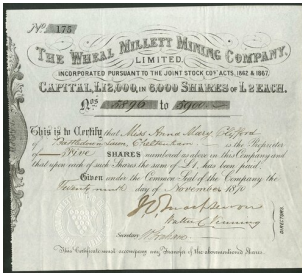 No. 175
THE WHEAL MILLETT MINING COMPANY,
LIMITED.
INCORPORATED PURSUANT TO THE JOINT STOCK COYS. ACTS, 1862 & 1867.
CAPITAL, £12,000, IN 6,000 SHARES OF £2 EACH.
Nos 5896 to 5900
This is to Certify that Miss Anna Mary
of Cheltenham is the Proprietor
of Five SHARES numbered as above in this Company and
that upon each of such Shares the sum of £ has been paid.
Given under the Common Seal of the Company the
Twenty ninth day of November 1870
DIRECTORS
Secretary
This Certificate must accompany any Transfer of the above mentioned Shares.